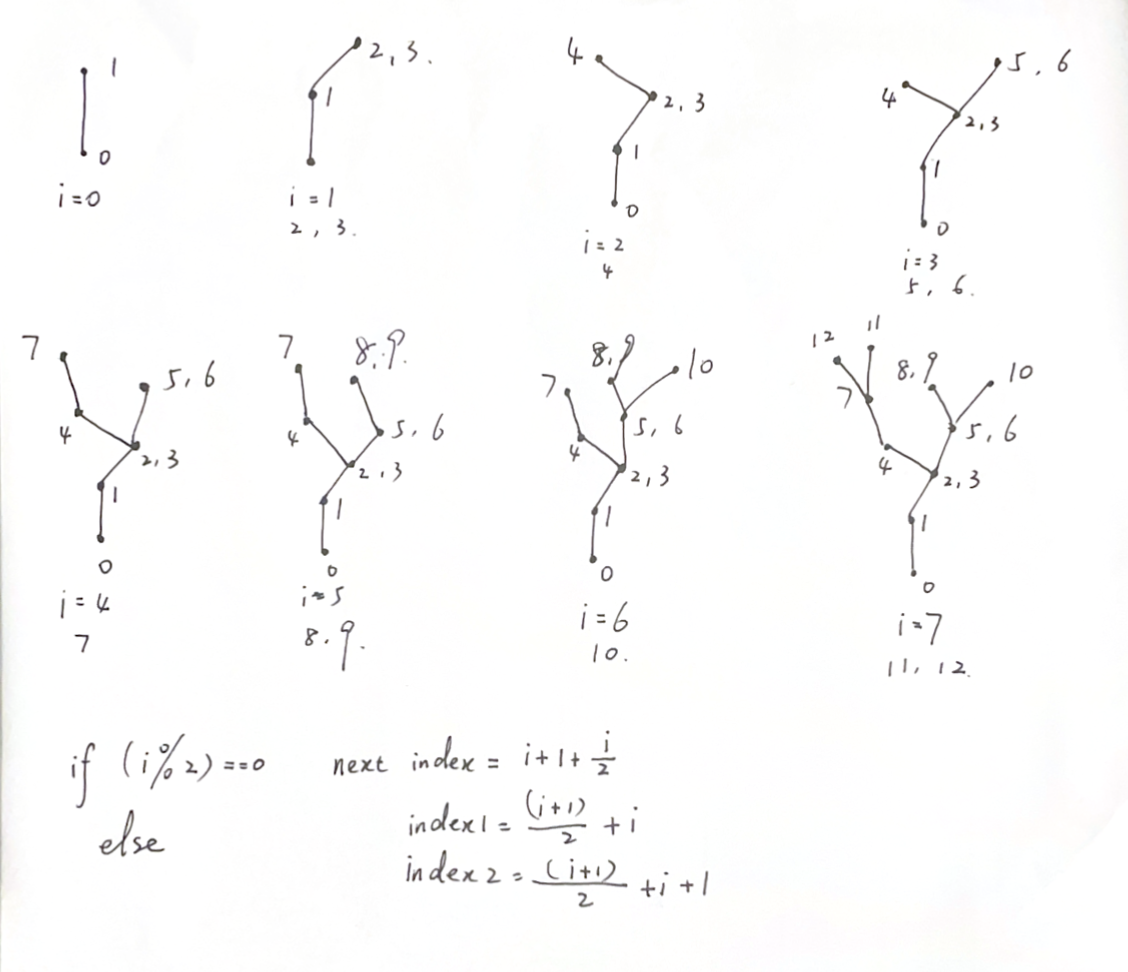 1
0
i=0
2, 3.
1
i=1
2, 3.
4
2, 3
1
0
i=2
4
5, 6
4
2, 3
1
0
i=3
5, 6.
7
5, 6
4
2, 3
1
0
i=4
7
7
8.9.
4
5, 6
2, 3
1
0
i=5
8.9.
8.9
7
10
5, 6
4
2, 3
1
0
i=6
10.
12
11
8.9
10
7
5, 6
4
2, 3
1
0
i=7
11, 12.
if (i%2)==0 next index = i+1+i/2
else index1 = (i+1)/2 + i
index2 = (i+1)/2 + i + 1